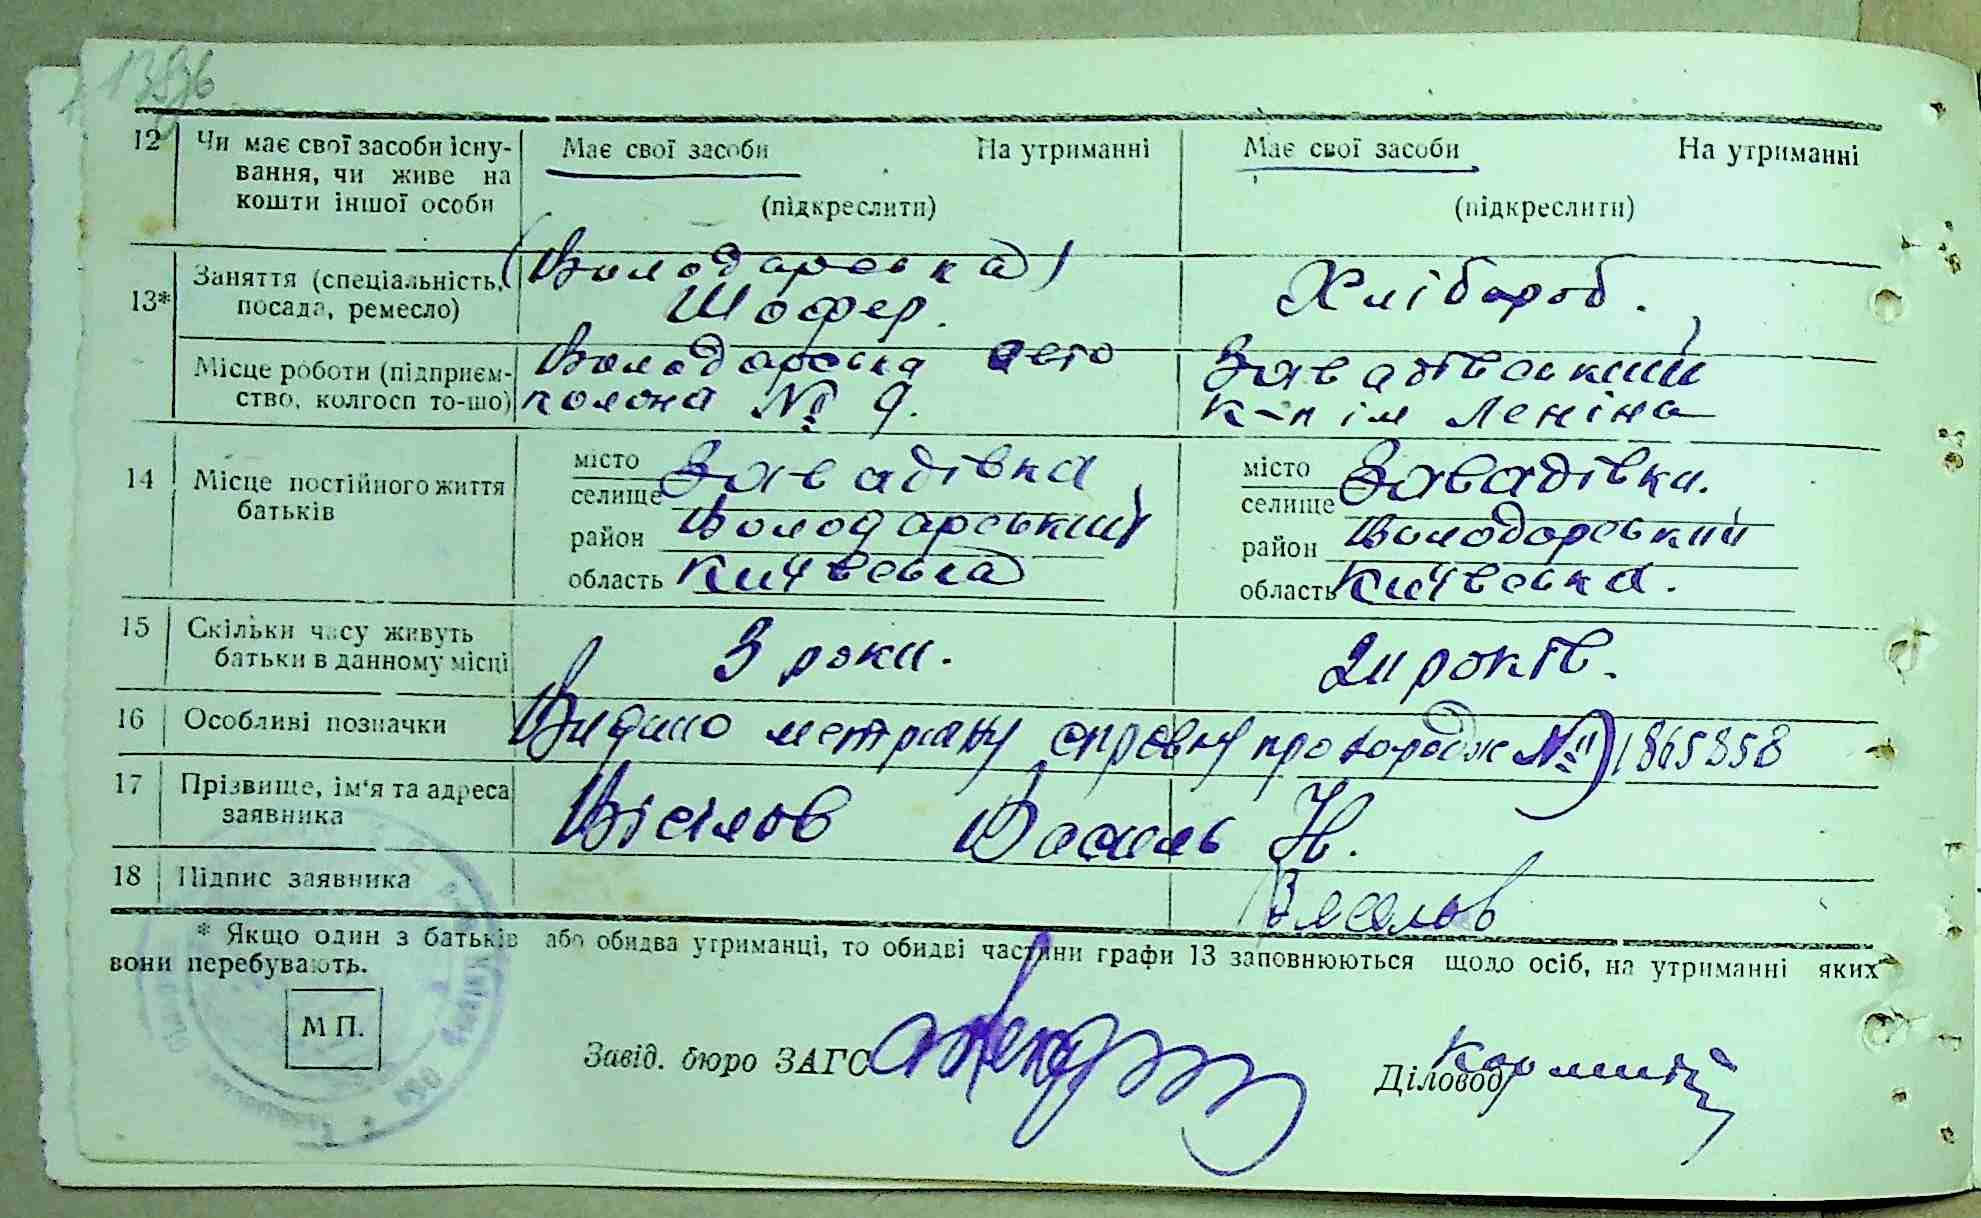 1396
12 Чи має свої засоби існу- Має свої засоби На утриманні Має свої засоби На утриманні
вання, чи живе на
кошти іншої особи (підкреслити) (підкреслити)
(Володарська)
13* Заняття (спеціальність, Шофер. Хлібороб.
посада, ремесло)
Місце роботи (підприєм- Володарська авто Завадівський
ство, колгосп то-що) колона № 9. к-п ім Леніна
14 Місце постійного життя місто Завадівка місто Завадівка.
батьків селище селище
район Володарський район Володарський
область Київська область Київська.
15 Скільки часу живуть 3 роки. 24 років.
батьки в данному місці
16 Особливі позначки Видано метричну справку про народж № 1865858
17 Прізвище, ім'я та адреса Вісілов Василь Н.
заявника
18 Підпис заявника Веселов
* Якщо один з батьків або обидва утриманці, то обидві частини графи 13 заповнюються щодо осіб, на утриманні яких
вони перебувають.
М П.
Завід. бюро ЗАГС Діловод